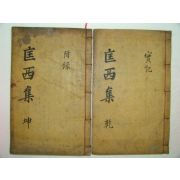 實記
匡西集 乾
附錄
匡西集 坤